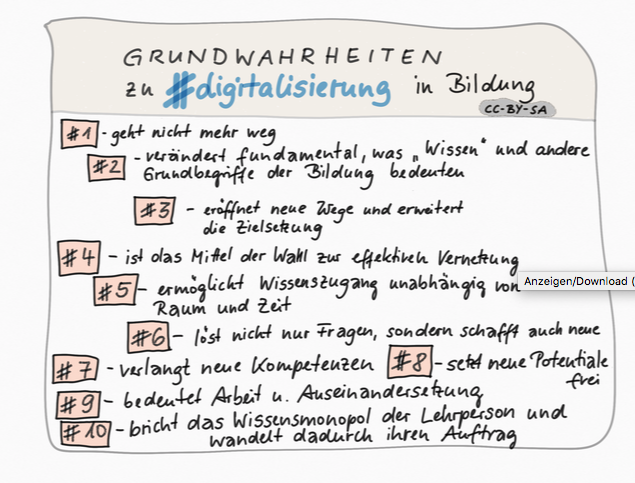 GRUNDWAHRHEITEN
zu #digitalisierung in Bildung
CC-BY-SA
#1 - geht nicht mehr weg
#2 - verändert fundamental, was „Wissen" und andere
Grundbegriffe der Bildung bedeuten
#3 - eröffnet neue Wege und erweitert
die Zielsetzung
#4 - ist das Mittel der Wahl zur effektiven Vernetzung
#5 - ermöglicht Wissenszugang unabhängig von
Raum und Zeit
Anzeigen/Download (
#6 - löst nicht nur Fragen, sondern schafft auch neue
#7 - verlangt neue Kompetenzen #8 - setzt neue Potentiale
frei
#9 - bedeutet Arbeit u. Auseinandersetzung
#10 - bricht das Wissensmonopol der Lehrperson und
wandelt dadurch ihren Auftrag